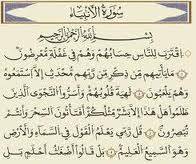 سُورَةُ الأَنبِيَاء
بِسْمِ اللَّهِ الرَّحْمَٰنِ الرَّحِيمِ
اقْتَرَبَ لِلنَّاسِ حِسَابُهُمْ وَهُمْ فِي غَفْلَةٍ مُّعْرِضُونَ
مَا يَأْتِيهِم مِّن ذِكْرٍ مِّن رَّبِّهِم مُّحْدَثٍ إِلَّا اسْتَمَعُوهُ
وَهُمْ يَلْعَبُونَ لَاهِيَةً قُلُوبُهُمْ وَأَسَرُّوا النَّجْوَى الَّذِينَ
ظَلَمُوا هَلْ هَٰذَا إِلَّا بَشَرٌ مِّثْلُكُمْ أَفَتَأْتُونَ السِّحْرَ وَأَنتُمْ
تُبْصِرُونَ رَبِّي يَعْلَمُ الْقَوْلَ فِي السَّمَاءِ وَالْأَرْضِ
وَهُوَ السَّمِيعُ الْعَلِيمُ بَلْ قَالُوا أَضْغَاثُ أَحْلَامٍ بَلِ